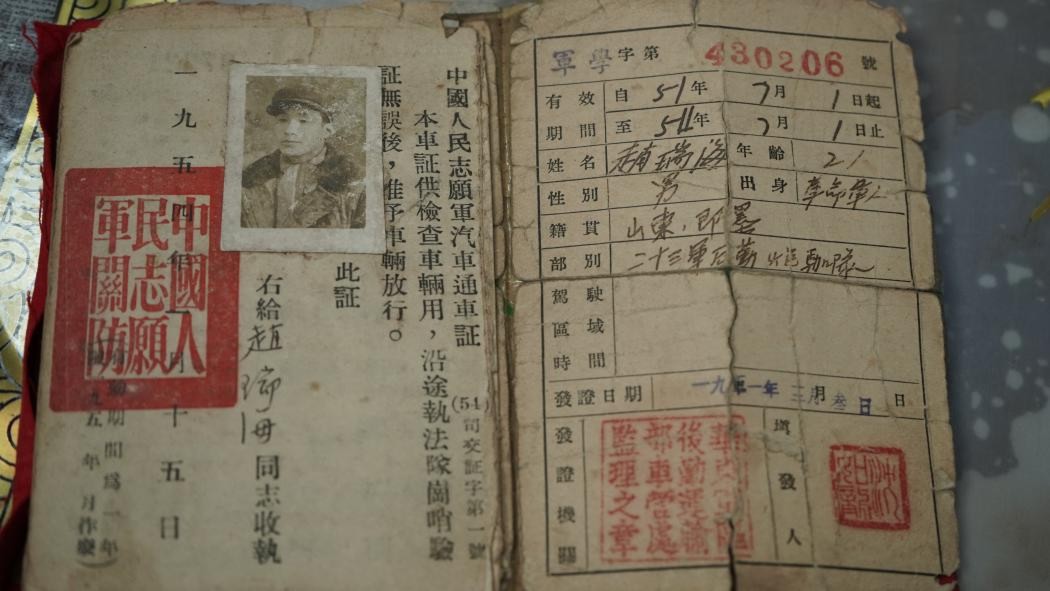 中國人民志願軍汽車通車証
(54)司交証字第一號
本車証供檢查車輛用，沿途執法隊崗哨驗
証無誤後，准予車輛放行。
此証
右給趙瑞海同志收執
一九五四年一月十五日
中國人
民志願
軍關防
軍學字第 430206 號
有效期間
自 51年 7月 1日起
至 54年 7月 1日止
姓名 趙瑞海 年齡 21
性別 男 出身 革命軍人
籍貫 山東，即墨
部別 二十三軍后勤汽車隊
駕駛區域時間
發證日期 一九五一年三月叁日 日
發證機關
後勤運輸
部車管處
監理之章
填發人